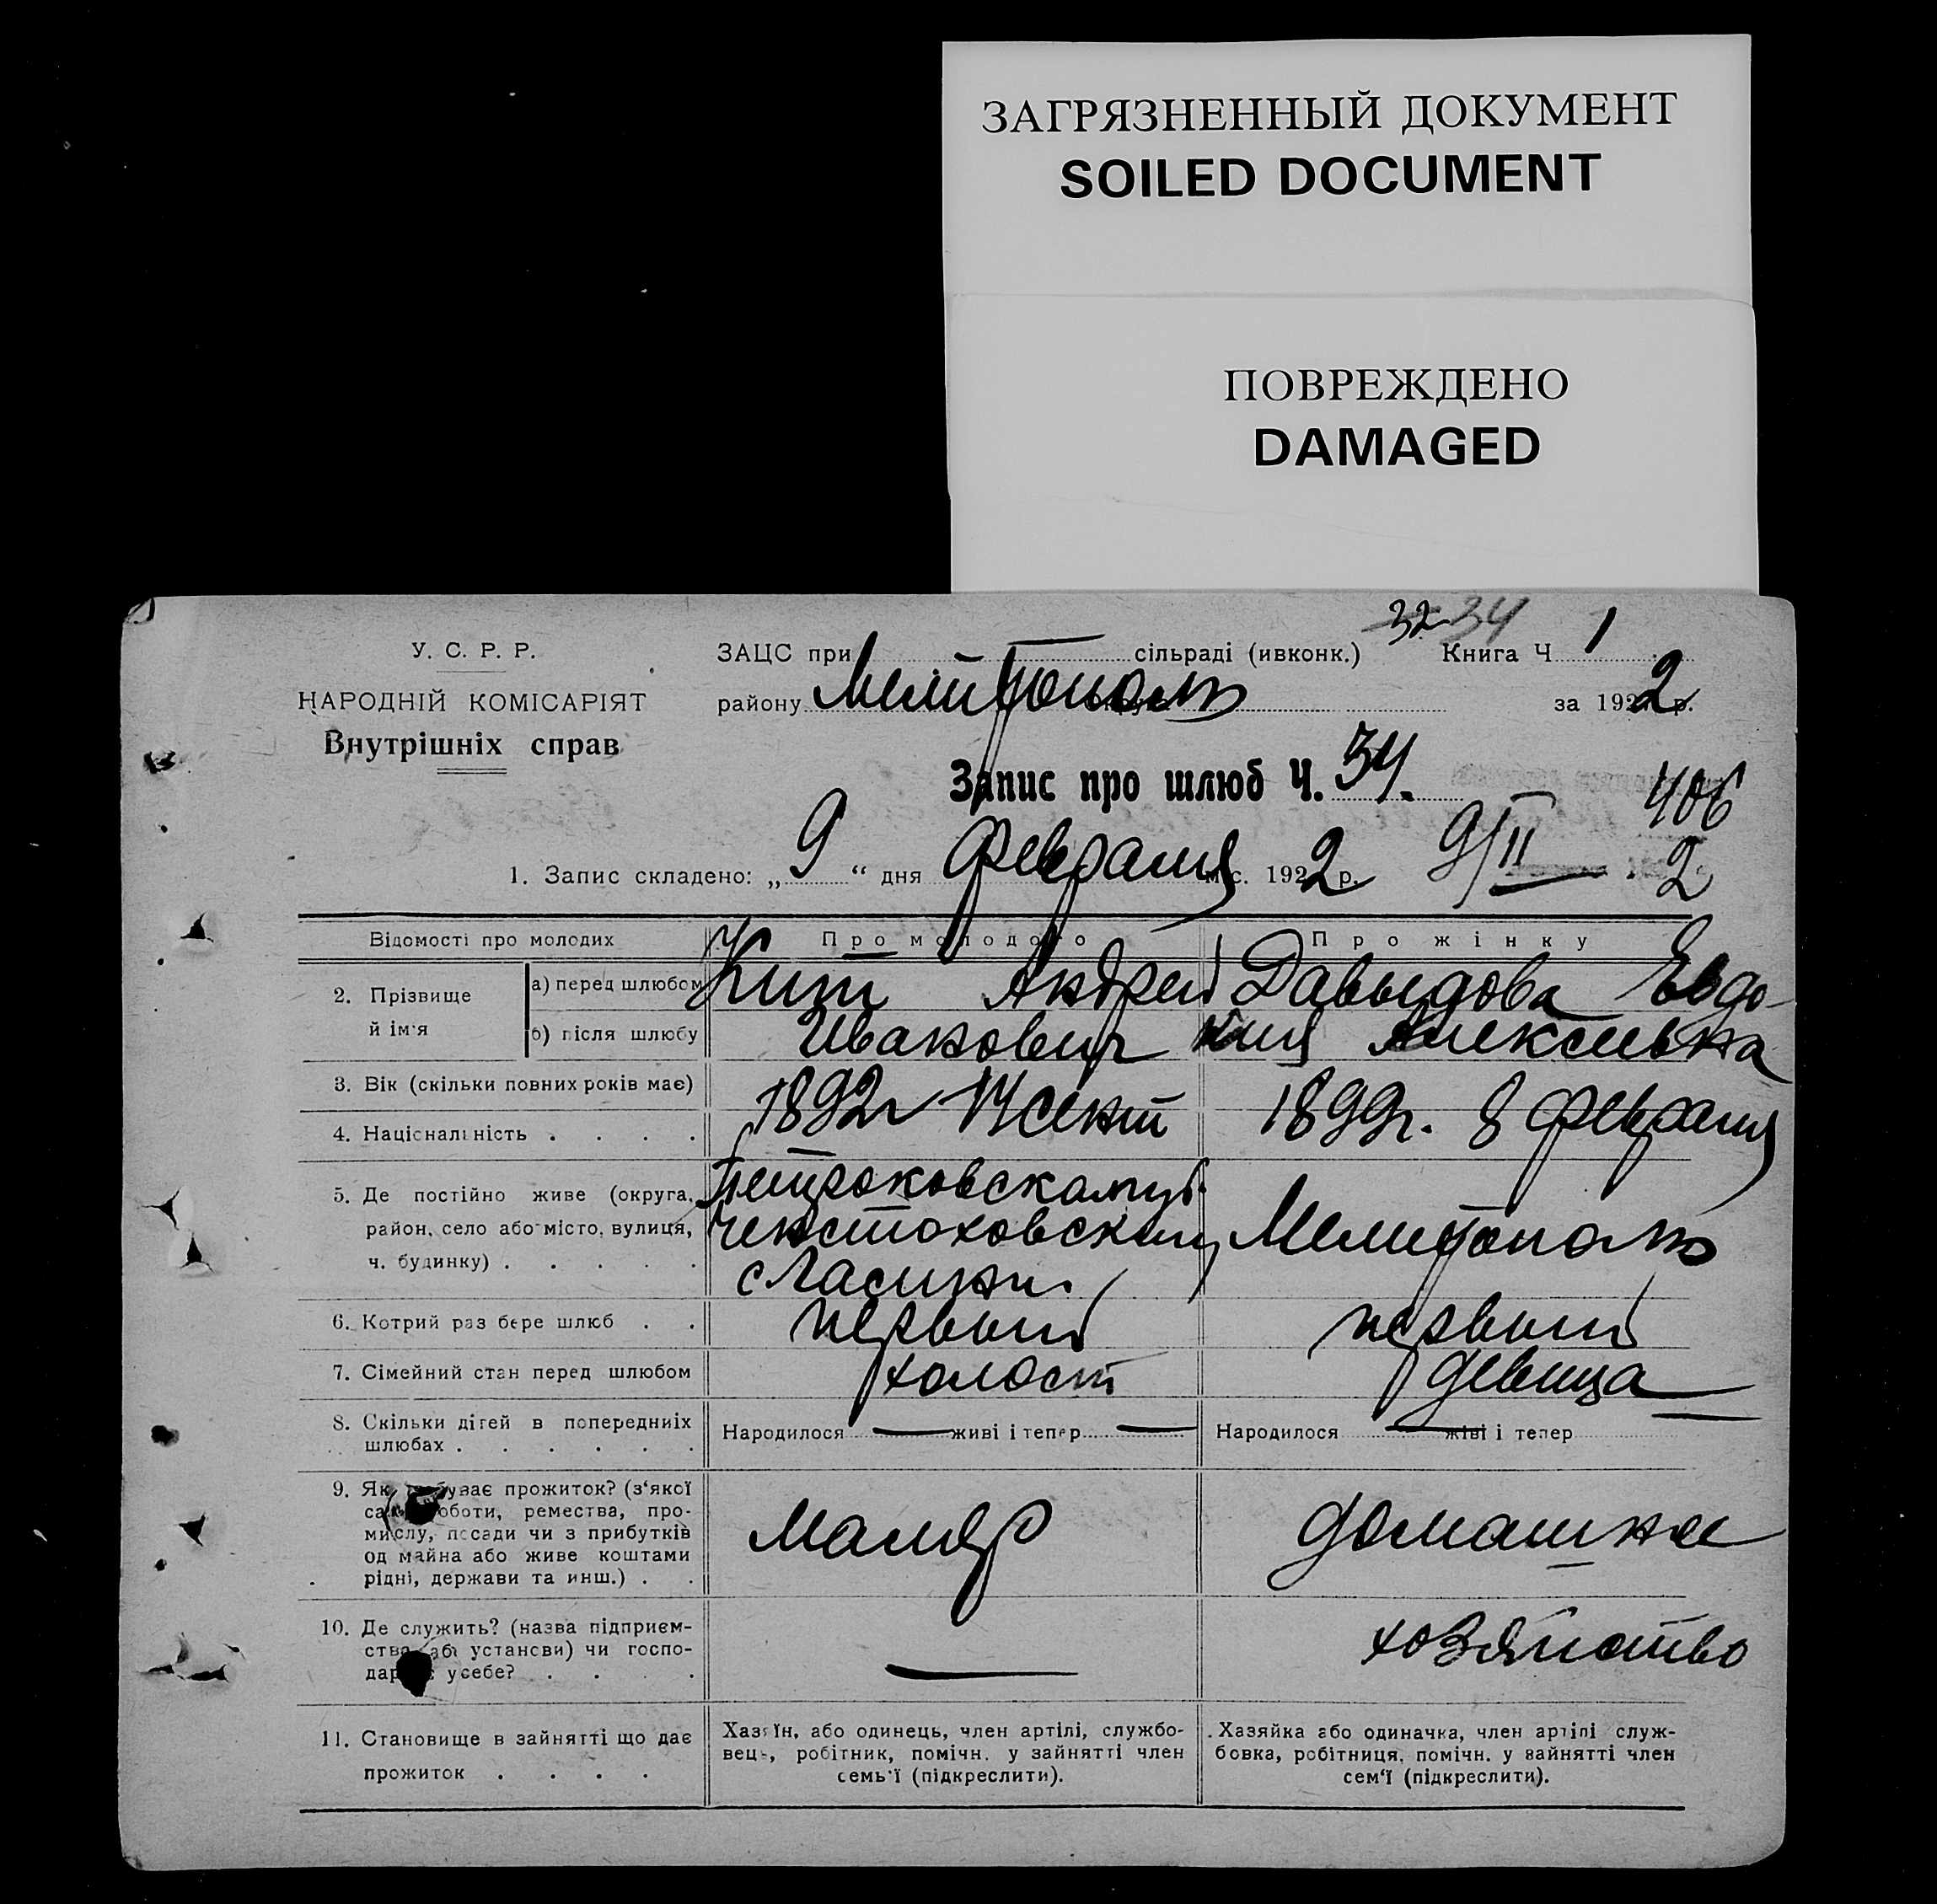 ЗАГРЯЗНЕННЫЙ ДОКУМЕНТ
SOILED DOCUMENT
ПОВРЕЖДЕНО
DAMAGED
32 34
У. С. Р. Р.
НАРОДНІЙ КОМІСАРІЯТ
Внутрішніх справ
ЗАЦС при сільраді (ивконк.) Книга Ч 1
району Мелитополь за 1922 р.
Запис про шлюб Ч. 34.
406
1. Запис складено: „9“ дня февраля міс. 1922 р. 9/II 2
Відомості про молодих Про молодого Про жінку
2. Прізвище й ім'я
а) перед шлюбом Кит Андрей Давыдова Евдо-
б) після шлюбу Иванович кия Алексеевна
3. Вік (скільки повних років має)
1892г 14 сент 1899г. 8 февраля
4. Національність . . . .
5. Де постійно живе (округа,
район, село або місто, вулиця,
ч. будинку) . . . . .
Петроковская губ.
Ченстоховский Мелитополь
с
6. Котрий раз бере шлюб . . первый первый
7. Сімейний стан перед шлюбом холост девица
8. Скільки дітей в попередниіх
шлюбах . . . . . .
Народилося — живі і тепер — Народилося — живі і тепер
9. Як прожиток? (з'якої
роботи, ремества, про-
мислу, посади чи з прибутків
од майна або живе коштами
рідні, держави та инш.) . .
маляр домашнее
10. Де служить? (назва підприєм-
ства або установи) чи госпо-
усебе? . . . .
— хозяйство
11. Становище в зайнятті що дає
прожиток . . . .
Хазяїн, або одинець, член артілі, службо-
вець, робітник, помічн. у зайнятті член
семь'ї (підкреслити).
Хазяйка або одиначка, член артілі служ-
бовка, робітниця, помічн. у зайнятті член
сем'ї (підкреслити).